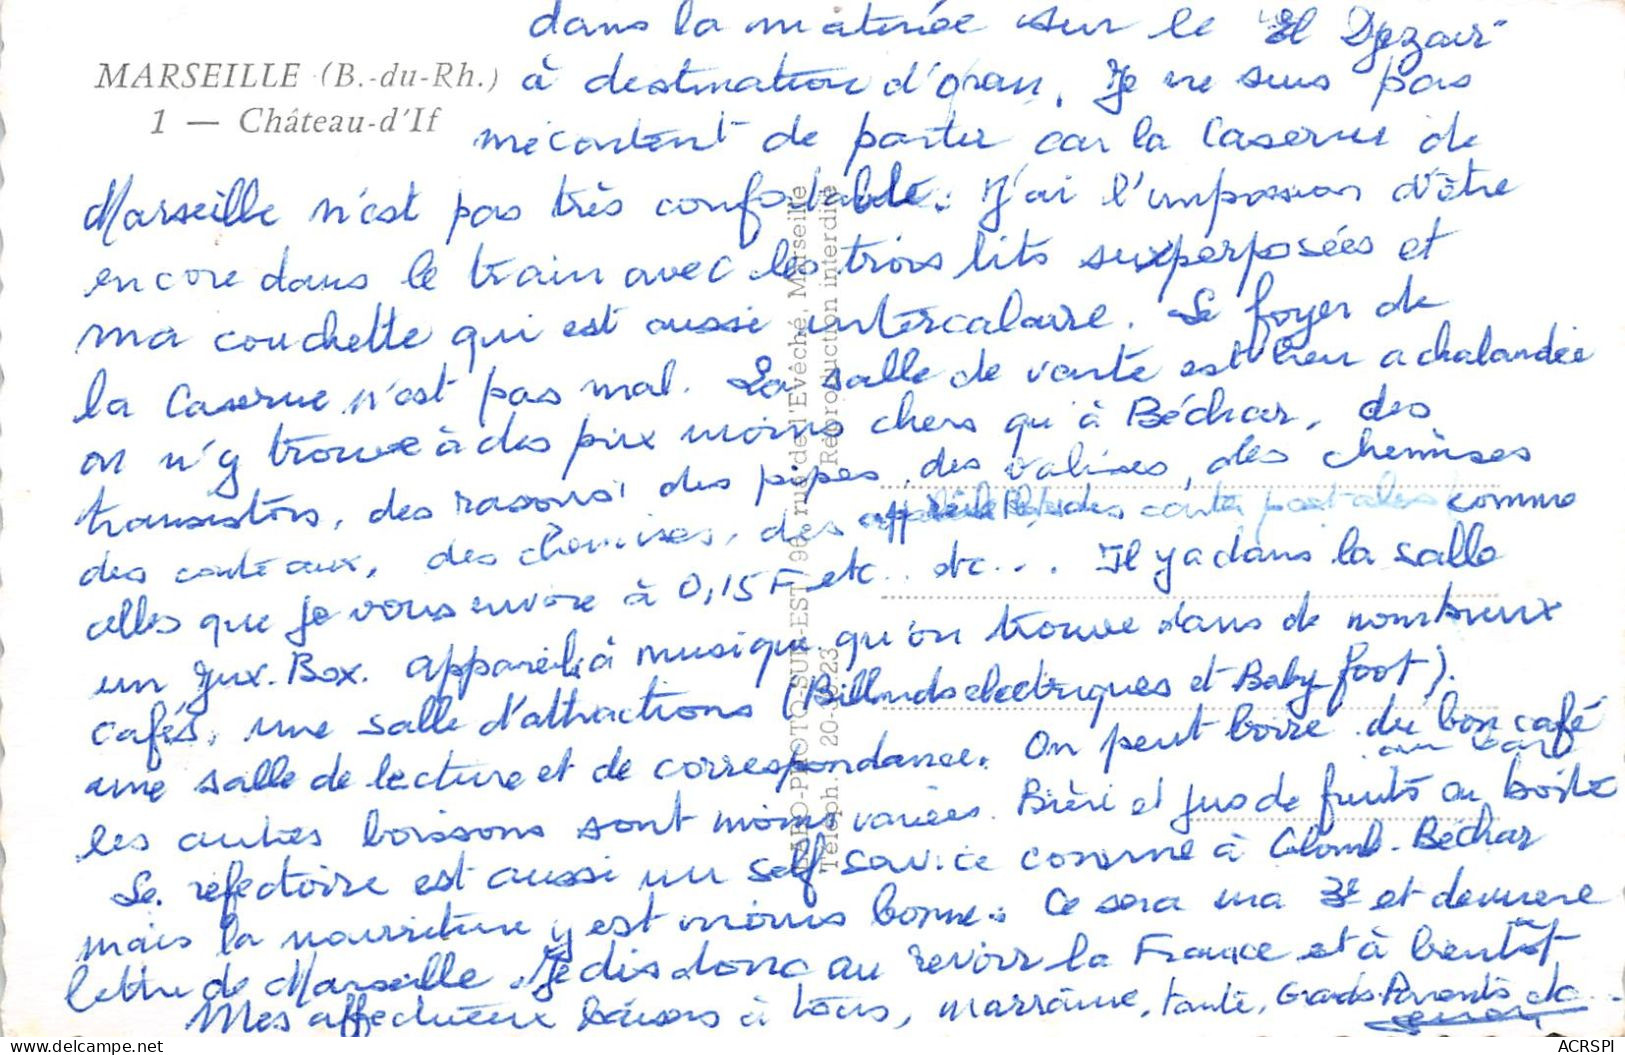 dans la matinée sur le "El Djezair"
MARSEILLE (B.-du-Rh.)
à destination d'Oran. Je ne suis pas
1 — Château-d'If
mécontent de partir car la Caserne de
Marseille n'est pas très confortable. J'ai l'impression d'être
encore dans le train avec les trois lits superposées et
ma couchette qui est aussi intercalaire. Le foyer de
la Caserne n'est pas mal. La salle de vente est bien achalandée
on n'y trouve à des prix moins chers qu'à Béchar, des
transistors, des rasoirs, des pipes, des valises, des chemises
des couteaux, des chemises, des cartes postales comme
celles que je vous envoie à 0,15 F etc.. etc... Il y a dans la salle
un Jux-Box. appareil à musique qu'on trouve dans de nombreux
cafés, une salle d'attractions (Billards electriques et Baby foot).
une salle de lecture et de correspondance. On peut boire du bon café
au bar
les autres boissons sont moins variées. Bière et jus de fruits en boîte
Le refectoire est aussi un self service comme à Colomb-Béchar
mais la nourriture y est moins bonne. Ce sera ma 3e et dernière
lettre de Marseille. Je dis donc au revoir la France et à bientôt
Mes affectueux baisers à tous, marraine, tante, Grands-Parents etc...
96, rue de l'Evêché, Marseille
Reproduction interdite
PHOTO-SUD-EST
Téléph. 20-
ACRSPI